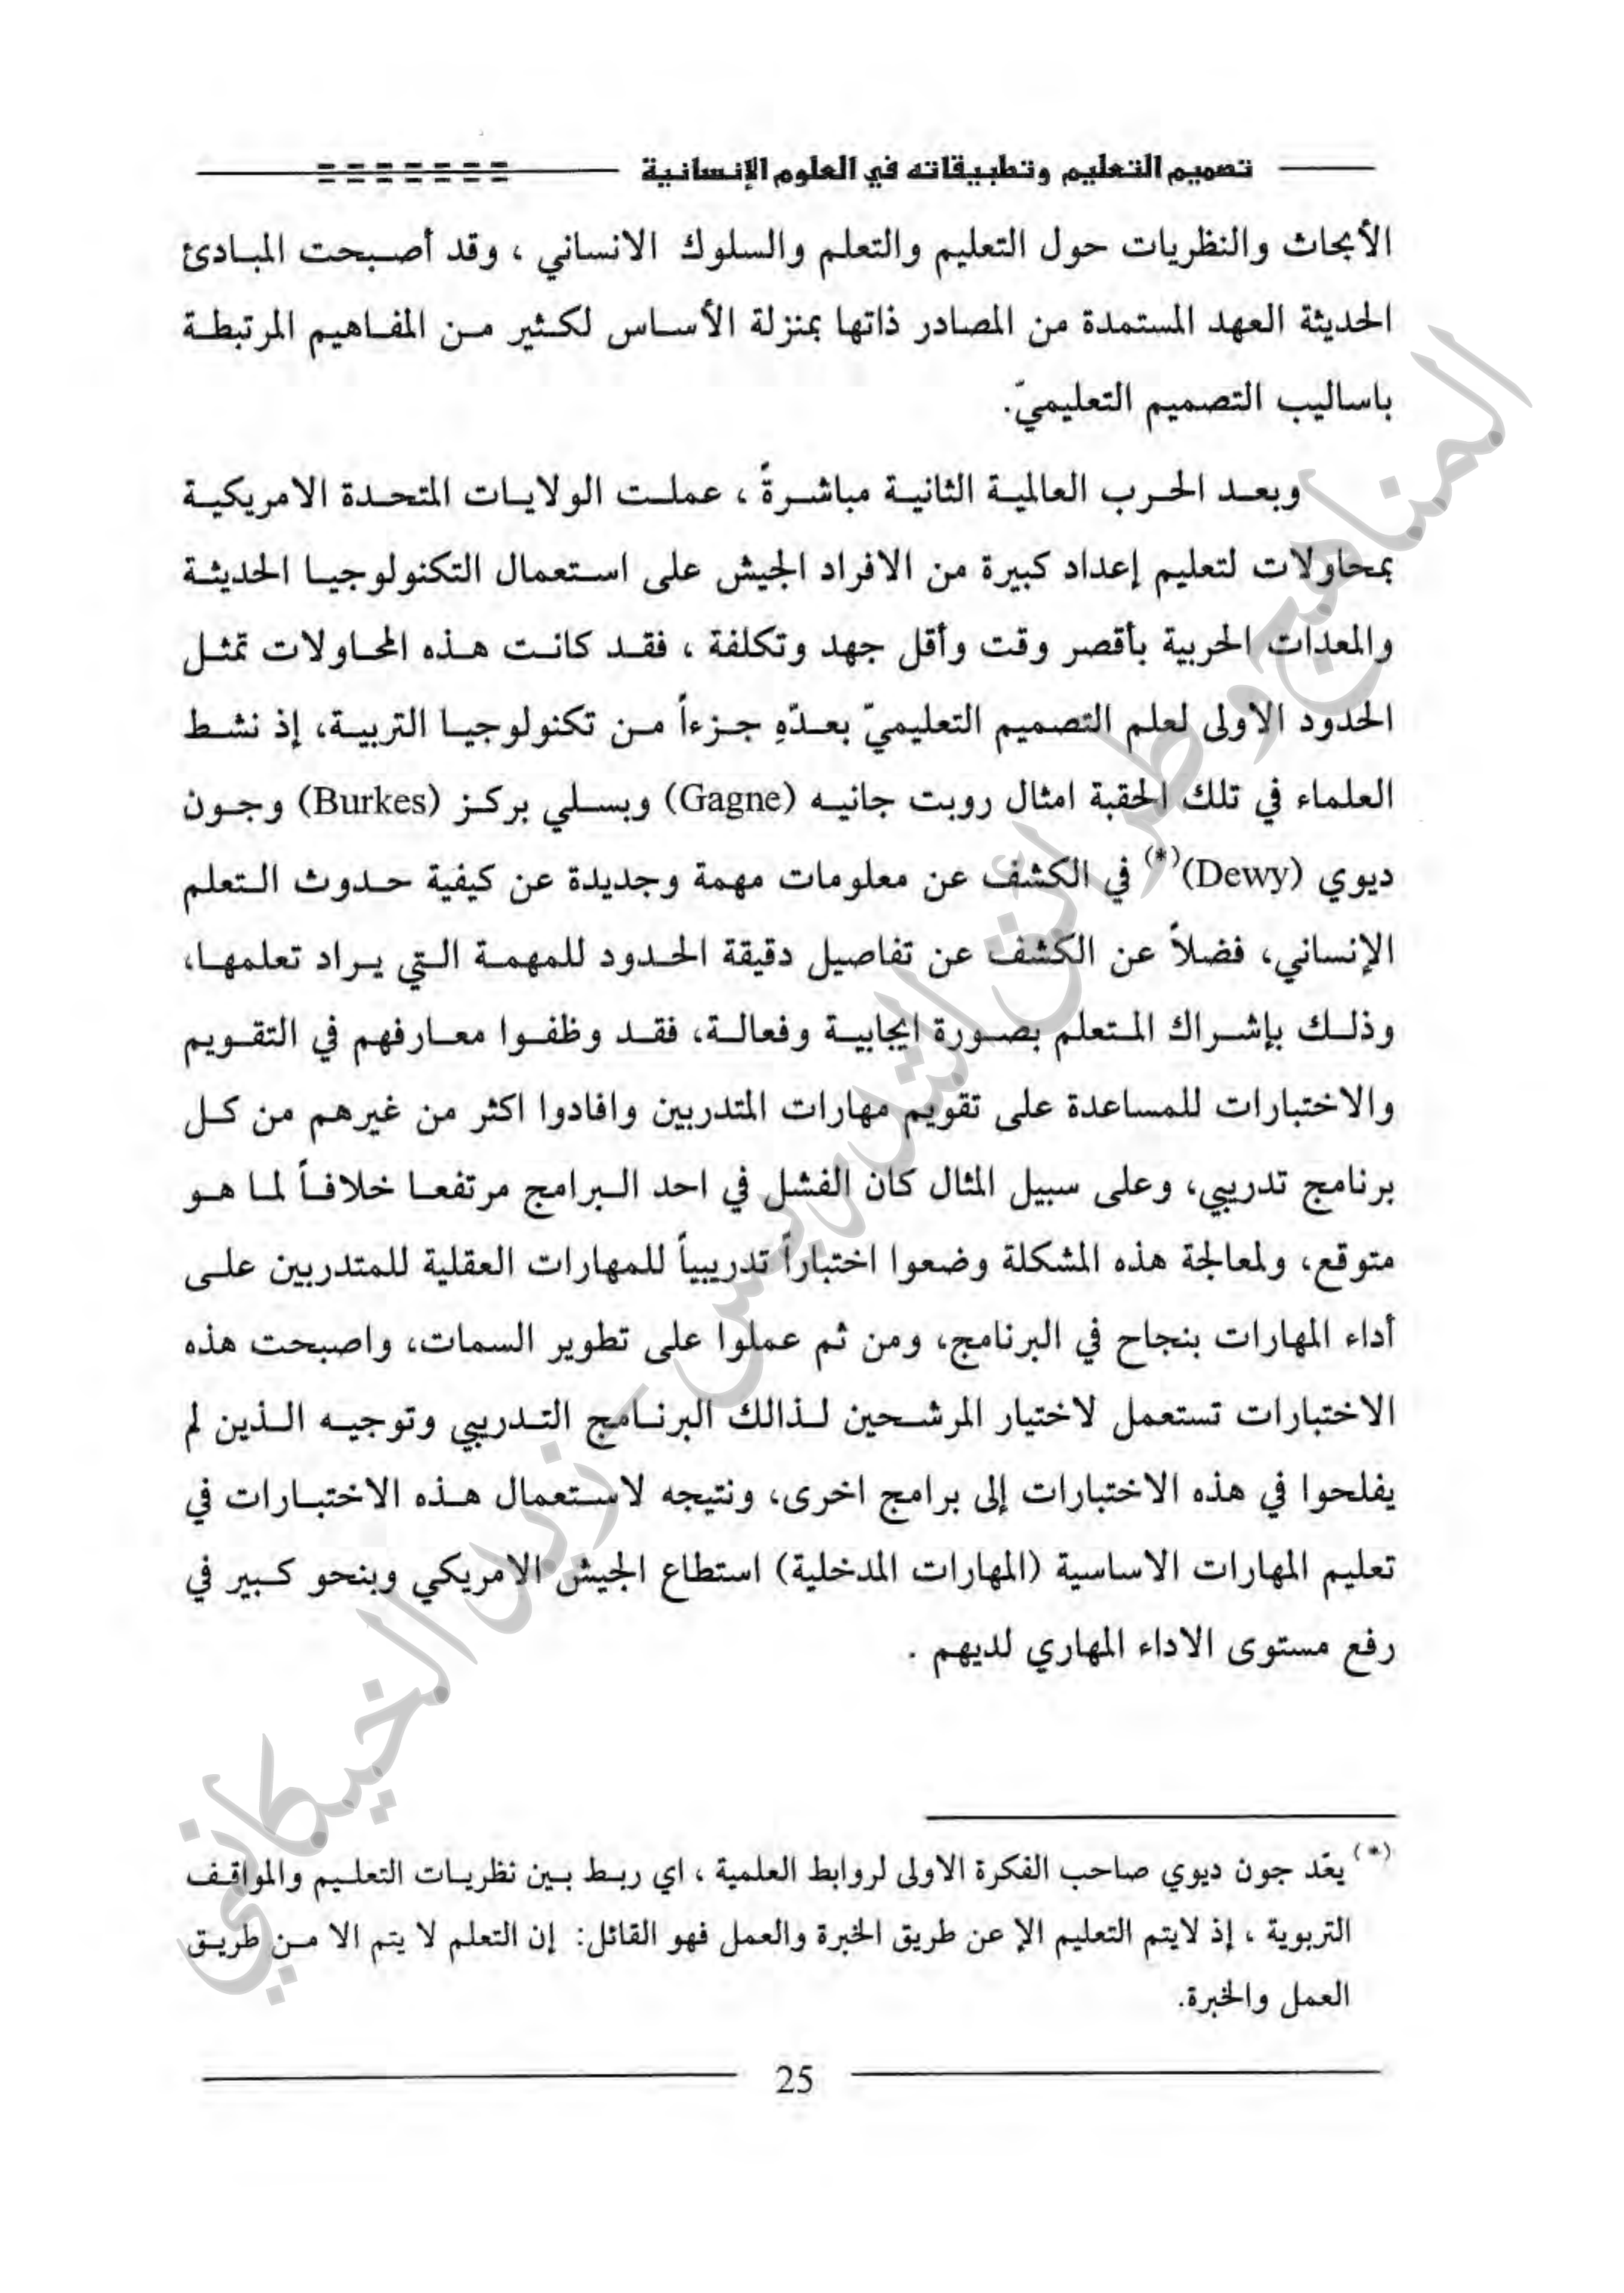 تصميم التعليم وتطبيقاته في العلوم الإنسانية
الأبحاث والنظريات حول التعليم والتعلم والسلوك الانساني ، وقد أصبحت المبادئ
الحديثة العهد المستمدة من المصادر ذاتها بمنزلة الأساس لكثير من المفاهيم المرتبطة
باساليب التصميم التعليميّ.
وبعد الحرب العالمية الثانية مباشرةً ، عملت الولايات المتحدة الامريكية
بمحاولات لتعليم إعداد كبيرة من الافراد الجيش على استعمال التكنولوجيا الحديثة
والمعدات الحربية بأقصر وقت وأقل جهد وتكلفة ، فقد كانت هذه المحاولات تمثل
الحدود الاولى لعلم التصميم التعليميّ بعدّهِ جزءاً من تكنولوجيا التربية، إذ نشط
العلماء في تلك الحقبة امثال روبت جانيه (Gagne) وبسلي بركز (Burkes) وجون
ديوي (Dewy)(*) في الكشف عن معلومات مهمة وجديدة عن كيفية حدوث التعلم
الإنساني، فضلاً عن الكشف عن تفاصيل دقيقة الحدود للمهمة التي يراد تعلمها،
وذلك بإشراك المتعلم بصورة ايجابية وفعالة، فقد وظفوا معارفهم في التقويم
والاختبارات للمساعدة على تقويم مهارات المتدربين وافادوا اكثر من غيرهم من كل
برنامج تدريبي، وعلى سبيل المثال كان الفشل في احد البرامج مرتفعا خلافاً لما هو
متوقع، ولمعالجة هذه المشكلة وضعوا اختباراً تدريبياً للمهارات العقلية للمتدربين على
أداء المهارات بنجاح في البرنامج، ومن ثم عملوا على تطوير السمات، واصبحت هذه
الاختبارات تستعمل لاختيار المرشحين لذالك البرنامج التدريبي وتوجيه الذين لم
يفلحوا في هذه الاختبارات إلى برامج اخرى، ونتيجه لاستعمال هذه الاختبارات في
تعليم المهارات الاساسية (المهارات المدخلية) استطاع الجيش الامريكي وبنحو كبير في
رفع مستوى الاداء المهاري لديهم .
(*) يعّد جون ديوي صاحب الفكرة الاولى لروابط العلمية ، اي ربط بين نظريات التعليم والمواقف
التربوية ، إذ لايتم التعليم الإ عن طريق الخبرة والعمل فهو القائل: إن التعلم لا يتم الا من طريق
العمل والخبرة.
25
المناهج وطرائق التدريس - زيد الخيكاني